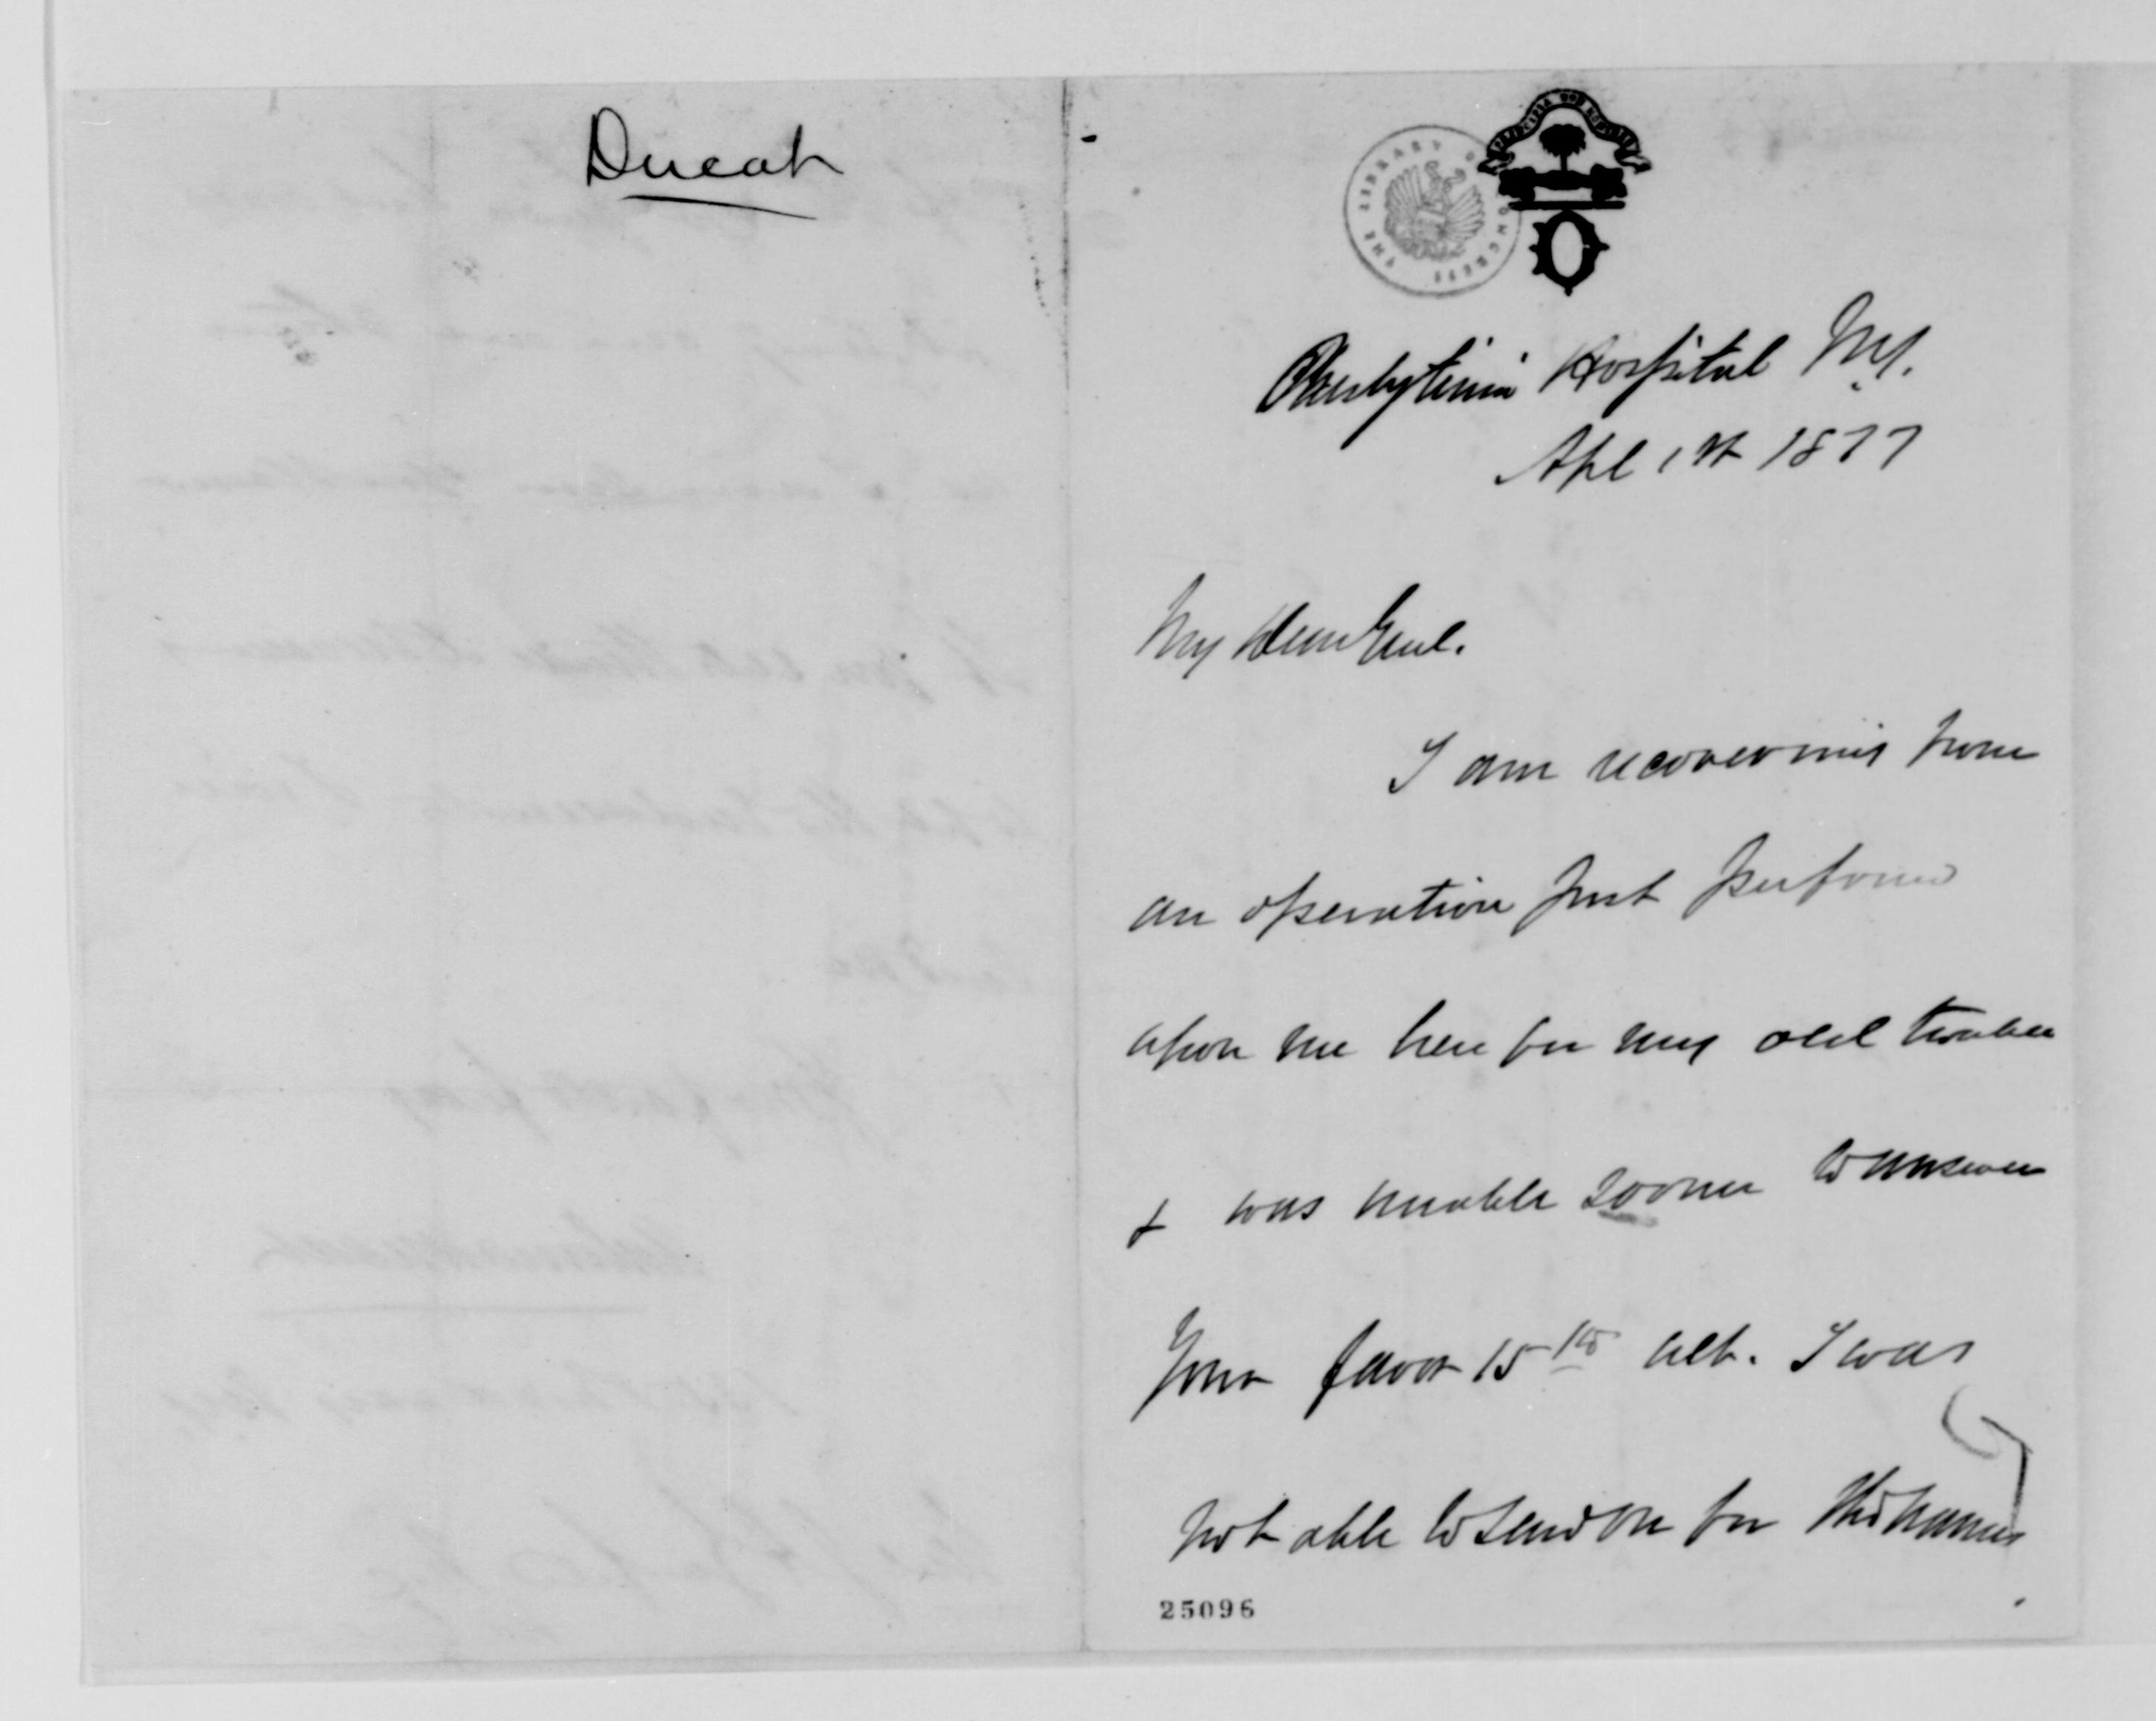 Ducat
THE LIBRARY OF CONGRESS
Presbyterian Hospital NY.
Apl 1st 1877
My Dear Genl.
I am recovering from
an operation just performed
upon me here for my old trouble
& was unable sooner to answer
Your favor 15th ult. I was
not able to send on for the names
25096